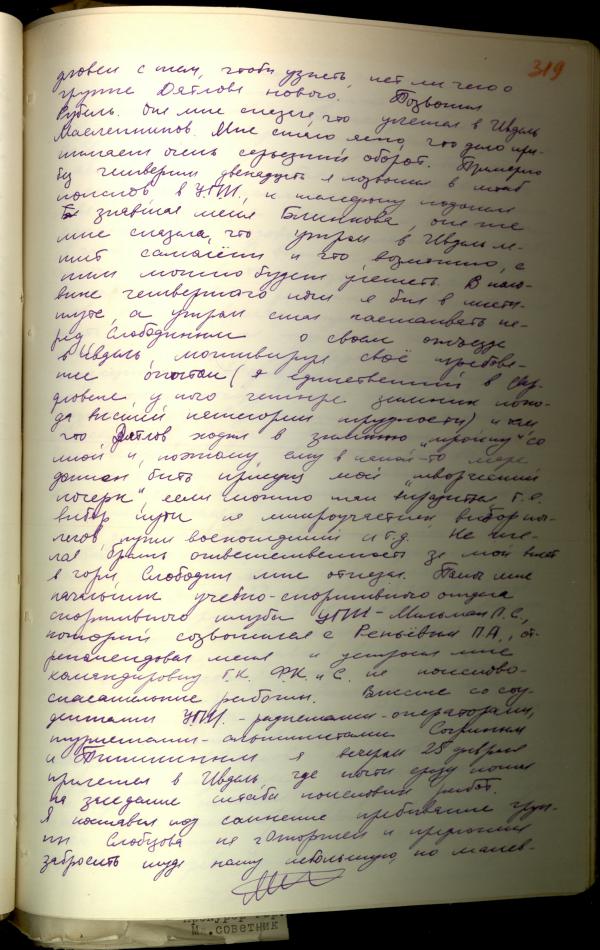 319
дловск с тем, чтобы узнать, нет ли чего о
группе Дятлова нового. Позвонил
Рубель. Он мне сказал, что улетел в Ивдель
Масленников. Мне стало ясно, что дело при-
нимает очень серьезный оборот. Примерно
без четверти двенадцать я позвонил в штаб
поисков в УПИ, к телефону подошла
знавшая меня Блинкова, она же
мне сказала, что утром в Ивдель ле-
тит самолёт и что возможно, с
ним можно будет улететь. В поло-
вине четвертого ночи я был в инсти-
туте, а утром стал настаивать пе-
ред Слободиным о своём отъезде
в Ивдель, мотивируя своё требова-
ние опытом (я единственный в Свер-
дловске, у кого четыре зимних похо-
да высшей категории трудности) и тем
что Дятлов ходил в зимнюю "тройку" со
мной и, поэтому ему в какой-то мере
должен быть присущ мой "творческий
почерк", если можно так выразиться т.е.
выбор пути на микроучастках выбор ноч-
легов, пути восхождений и т.д. Не же-
лая брать ответственность за мой вылет
в горы, Слободин мне отказал. Только
начальник учебно-спортивного отдела
спортивного клуба УПИ - Мильман П.С.,
который созвонился с Репьёвым П.А., от-
рекомендовал меня и устроил мне
командировку Г.К. Ф.К. и С. на поисково-
спасательные работы. Вместе со сту-
дентами УПИ - радистами-операторами,
туристами-альпинистами Согриным
и Типикиным я вечером 25 февраля
прилетел в Ивдель, где почти сразу попал
на заседание штаба поисковых работ.
Я поставил под сомнение пребывание груп-
пы Слобцова на г. Отортен и предложил
забросить туда нашу небольшую, но манев-
М. советник